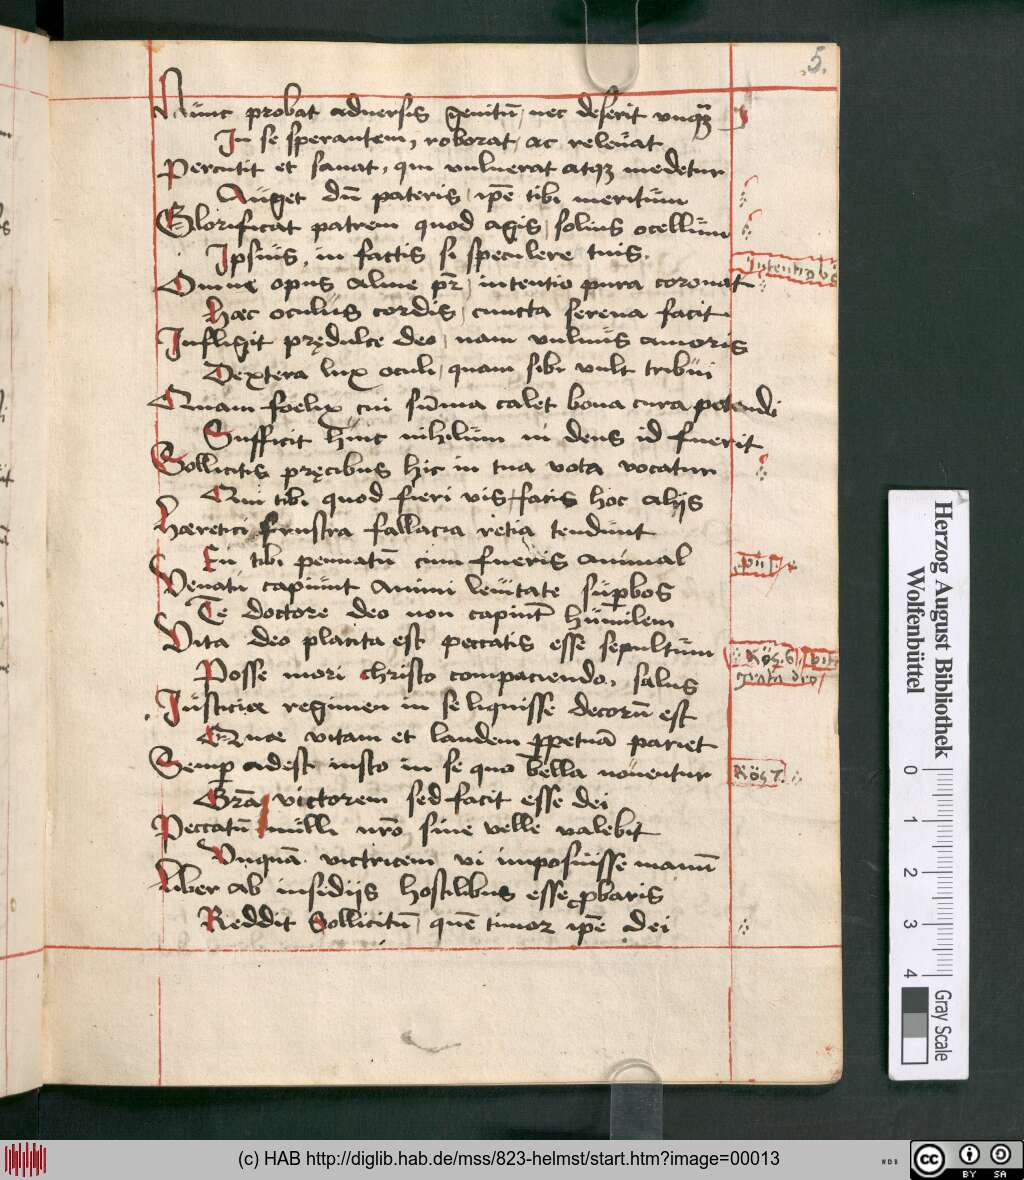 5.
Nunc probat aduersis genitū, nec deserit vnqꝫ
In se sperantem, roborat, ac releuat
Percutit et sanat, qui vulnerat atqꝫ medetur
Auget dū pateris, ipē tibi meritum
Glorificat patrem quod agis, solius ocellum
Ipsius, in factis si speculere tuis.
Omne opus alme pr̄, intentio pura coronat
Hæc oculus cordis, cuncta serena facit
Infligit prędulce deo, nam vulnus amoris
Dextera lux oculi, quam sibi vult tribui
Quam foelix cui sūma calet bona cura petendi
Sufficit hunc nihilum ni deus id fuerit
Sollicitis pręcibus hic in tua vota vocatur
Qui tibi quod fieri vis, facis hoc alijs
Hæretici frustra fallacia retia tendunt
En tibi pennatū cum fueris animal
Venatu capiunt animi leuitate suꝑbos
Te doctore deo non capiunt humilem
Vita deo placita est peccatis esse sepultum
Posse mori christo compaciendo, salus
Iusticiæ regimen in se liquisse decorū est
Quæ vitam et laudem ꝑpetuā pariet
Semꝑ adest iusto in se quo bella nouentur
Grā victorem sed facit esse dei
Peccatū nulli nr̄o sine velle valebit
Vnquā victricem vi imposuisse manū
Liber ab insedijs hostilibus esse ꝓbaris
Reddit Sollicitū, quē timor ipē dei
Intentio
Ro. 6
grata deo
Ro. 7
Herzog August Bibliothek
Wolfenbüttel
0 1 2 3 4
Gray Scale
(c) HAB http://diglib.hab.de/mss/823-helmst/start.htm?image=00013
cc BY SA